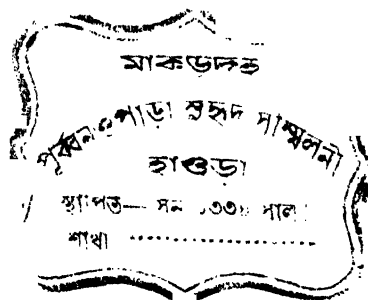 মাকড়দহ
পূর্ব্বন্নপাড়া সুহৃদ সম্মিলনী
হাওড়া
স্থাপিত— সন ১৩৩ সাল।
শাখা ....................